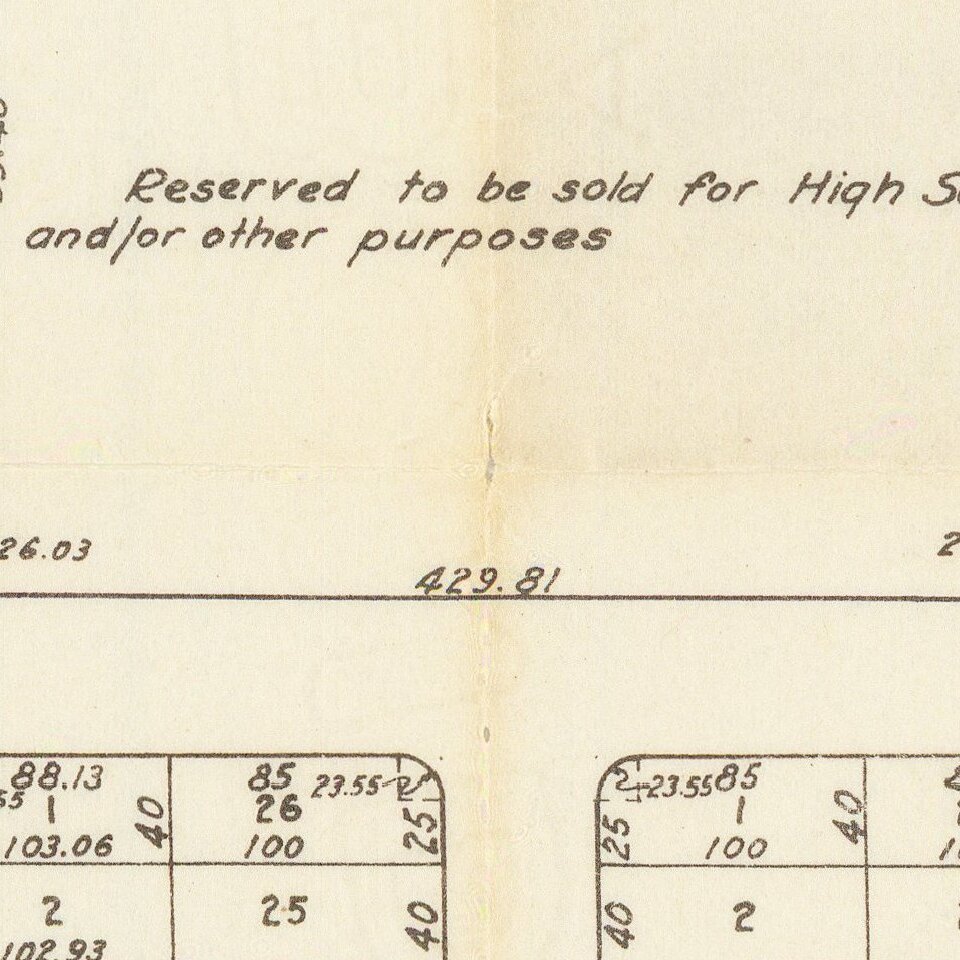 Reserved to be sold for High
and/or other purposes
26.03
429.81
88.13
85
23.55
23.55
85
1
40
26
25
25
1
40
103.06
100
100
2
25
40
40
2
102.93